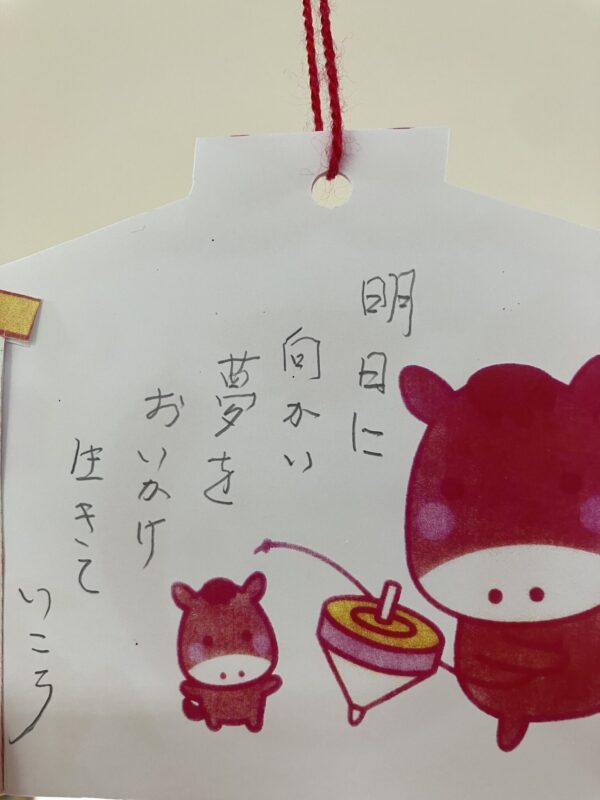 明日に
向かい
夢を
おいかけ
生きて
いころ